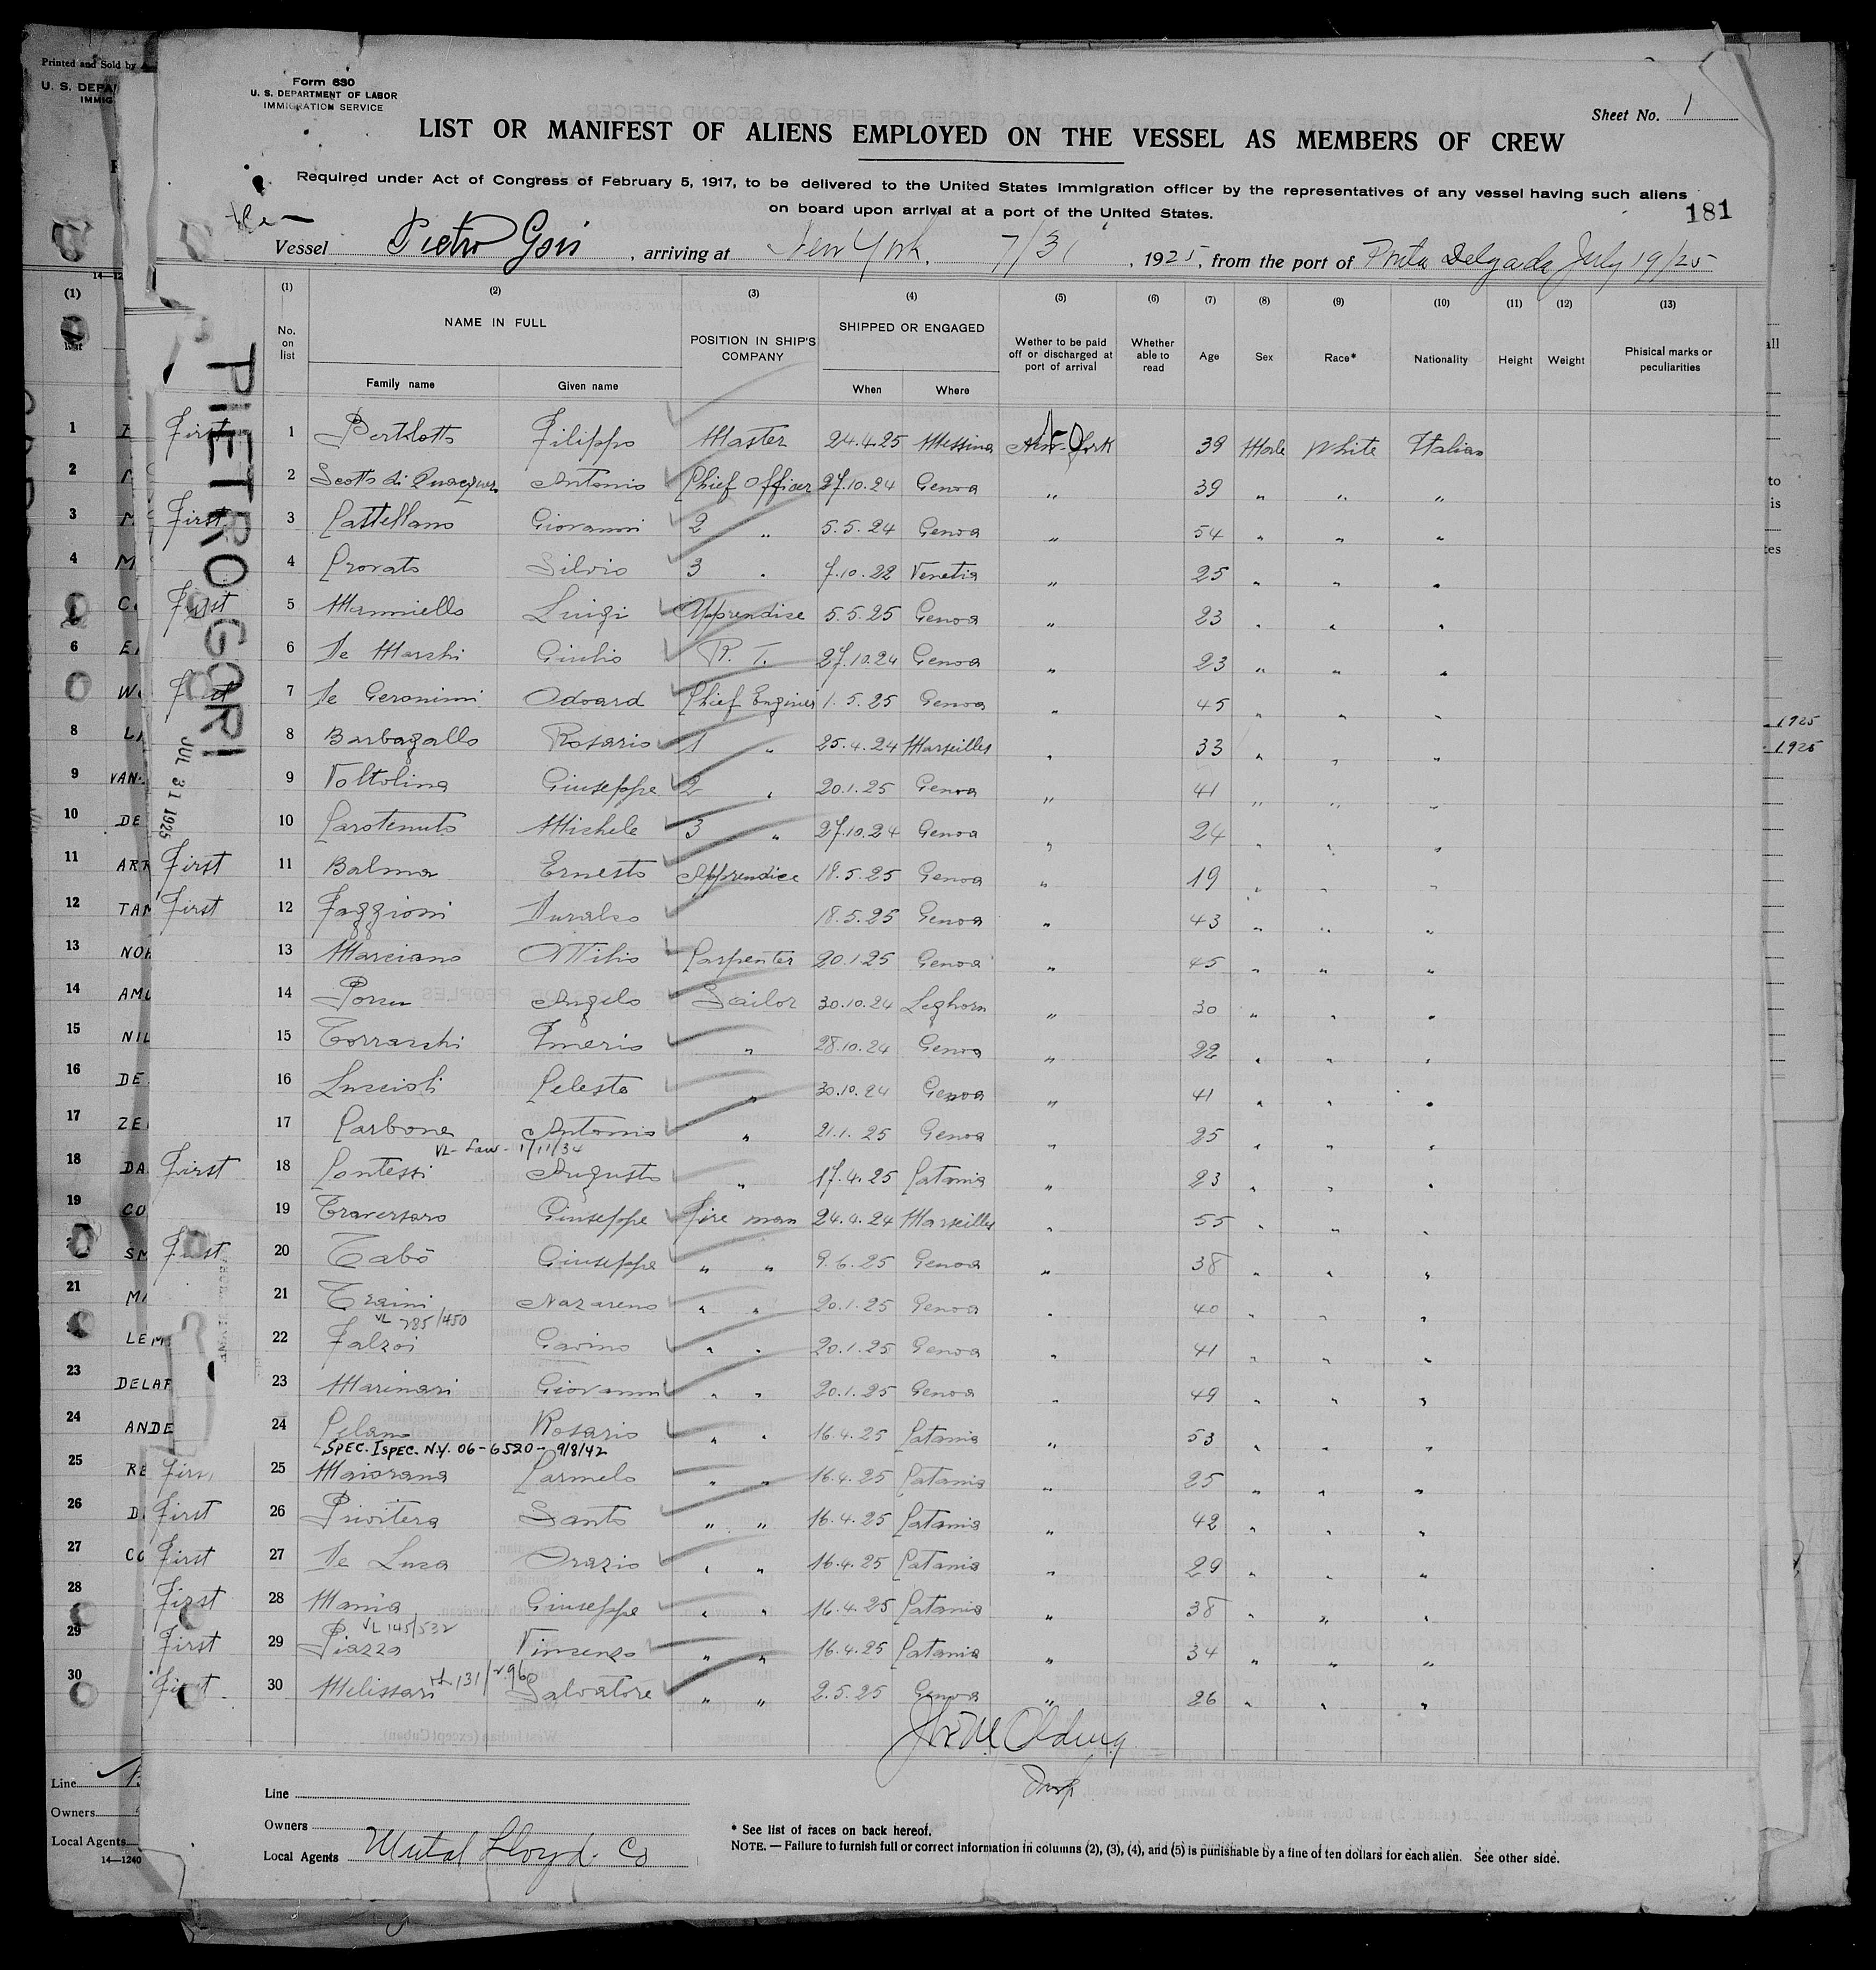 Form 630
U. S. DEPARTMENT OF LABOR
IMMIGRATION SERVICE
Sheet No. 1
LIST OR MANIFEST OF ALIENS EMPLOYED ON THE VESSEL AS MEMBERS OF CREW
Required under Act of Congress of February 5, 1917, to be delivered to the United States Immigration officer by the representatives of any vessel having such aliens
on board upon arrival at a port of the United States.
181
Vessel Pietro Gori, arriving at New York, 7/31, 1925, from the port of Delgada July 19/25
(1) (2) (3) (4) (5) (6) (7) (8) (9) (10) (11) (12) (13)
No. on list NAME IN FULL POSITION IN SHIP'S COMPANY SHIPPED OR ENGAGED Wether to be paid off or discharged at port of arrival Whether able to read Age Sex Race* Nationality Height Weight Phisical marks or peculiarities
Family name Given name When Where
First 1 Filippo Master 24.4.25 Messina New-York 39 Male White Italian
2 Antonio Chief Officer 27.10.24 Genoa " 39 " " "
First 3 Castellano Giovanni 2 " 5.5.24 Genoa " 54 " " "
4 Crovato Silvio 3 " 7.10.22 Venetia " 25 " " "
First 5 Manniello Luigi Apprendise 5.5.25 Genoa " 23 " " "
6 De Marchi Giulio R. T. 27.10.24 Genoa " 23 " " "
First 7 De Geronimi Odoard Chief Enginer 1.5.25 Genoa " 45 " " "
8 Barbagallo Rosario 1 " 25.4.24 Marseilles " 33 " " "
9 Voltolina Giuseppe 2 " 20.1.25 Genoa " 41 " " "
10 Carotenuto Michele 3 " 27.10.24 Genoa " 24 " " "
First 11 Balma Ernesto Apprendice 18.5.25 Genoa " 19 " " "
First 12 Faggioni 18.5.25 Genoa " 43 " " "
13 Marciano Attilio Carpenter 20.1.25 Genoa " 45 " " "
14 Angelo Sailor 30.10.24 Leghorn " 30 " " "
15 Torraschi Imerio " 28.10.24 Genoa " 22 " " "
16 Luccioli Celeste " 30.10.24 Genoa " 41 " " "
17 Carbone Antonio " 21.1.25 Genoa " 25 " " "
VL- Law - 1/11/34
First 18 Contessi Augusto " 17.4.25 Catania " 23 " " "
19 Traversaro Giuseppe Fire man 24.4.24 Marseilles " 55 " " "
First 20 Tabò Giuseppe " " 9.6.25 Genoa " 38 " " "
21 Traini Nazareno " " 20.1.25 Genoa " 40 " " "
VL 785/450
22 Falzoi Gavino " " 20.1.25 Genoa " 41 " " "
23 Marinari Giovanni " " 20.1.25 Genoa " 49 " " "
24 Celano Rosario " " 16.4.25 Catania " 53 " " "
SPEC. ISPEC. N.Y. 06-6520-9/8/42
First 25 Maiorana Carmelo " " 16.4.25 Catania " 25 " " "
First 26 Privitera Santo " " 16.4.25 Catania " 42 " " "
First 27 De Luca Orazio " " 16.4.25 Catania " 29 " " "
First 28 Mania Giuseppe " " 16.4.25 Catania " 38 " " "
VL 145/532
First 29 Piazza Vincenzo " " 16.4.25 Catania " 34 " " "
First 30 Melissari Salvatore " " 2.5.25 Genoa " 26 " " "
PIETRO GORI
JUL 31 1925
Insp
Line
Owners
Local Agents Lloyd Co
* See list of races on back hereof.
NOTE. — Failure to furnish full or correct information in columns (2), (3), (4), and (5) is punishable by a fine of ten dollars for each alien. See other side.
Printed and Sold by
Line
Owners
Local Agents
14—1240